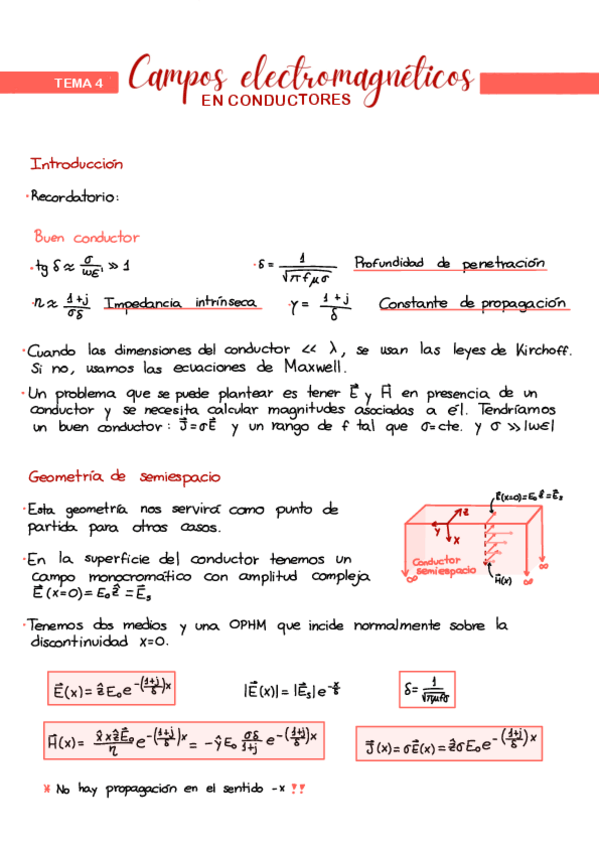 TEMA 4
Campos electromagnéticos
EN CONDUCTORES
Introducción
· Recordatorio:
Buen conductor
· tg δ ≈ σ/ωε' >> 1
· δ = 1/√(πfμσ) Profundidad de penetración
· η ≈ (1+j)/(σδ) Impedancia intrínseca
· γ = (1+j)/δ Constante de propagación
· Cuando las dimensiones del conductor << λ, se usan las leyes de Kirchoff.
Si no, usamos las ecuaciones de Maxwell.
· Un problema que se puede plantear es tener E⃗ y H⃗ en presencia de un
conductor y se necesita calcular magnitudes asociadas a él. Tendríamos
un buen conductor: J⃗=σE⃗ y un rango de f tal que σ=cte. y σ >> |ωε|
Geometría de semiespacio
· Esta geometría nos servirá como punto de
partida para otros casos.
· En la superficie del conductor tenemos un
campo monocromático con amplitud compleja
E⃗(x=0)= E₀ẑ = E⃗s
E⃗(x=0)=E₀ẑ=E⃗s
z
y
x
Conductor
semiespacio
H⃗(x)
∞
∞
∞
· Tenemos dos medios y una OPHM que incide normalmente sobre la
discontinuidad x=0.
E⃗(x) = ẑE₀e^-((1+j)/δ)x
|E⃗(x)| = |E⃗s|e^-x/δ
δ = 1/√(πμfσ)
H⃗(x) = (x̂xẑE⃗₀/η) e^-((1+j)/δ)x = -ŷE₀ (σδ/(1+j)) e^-((1+j)/δ)x
J⃗(x) = σE⃗(x) = ẑσE₀e^-((1+j)/δ)x
* No hay propagación en el sentido -x !!